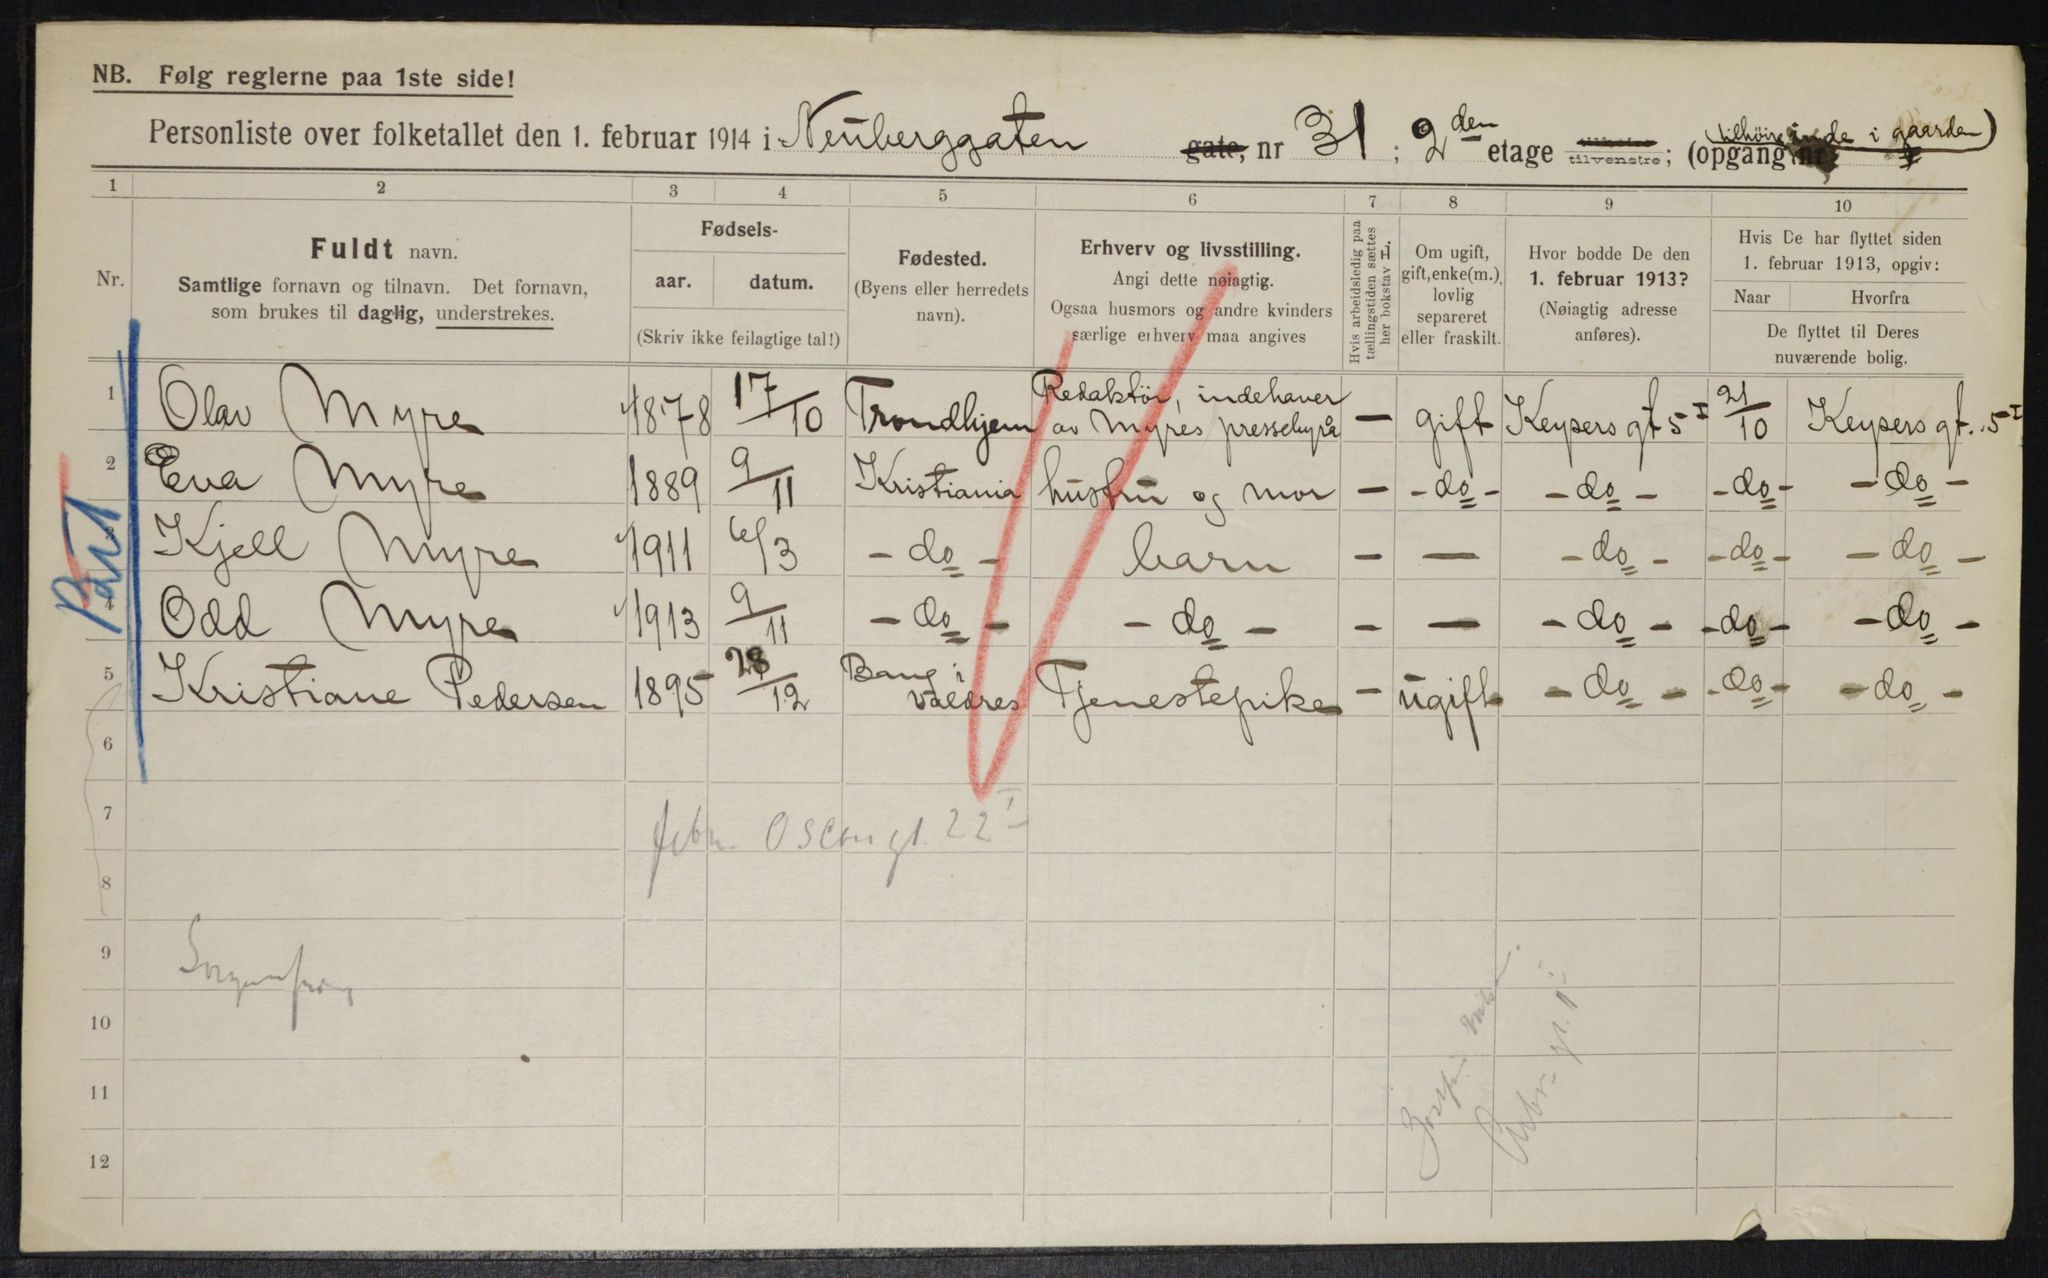 NB. Følg reglerne paa 1ste side!
Personliste over folketallet den 1. februar 1914 i Neuberggaten gate, nr 31; 2den etage tilvenstre; (opgang nr (tilhøire inde i gaarden)
1 2 3 4 5 6 7 8 9 10
Nr.
Fuldt navn.
Samtlige fornavn og tilnavn. Det fornavn,
som brukes til daglig, understrekes.
Fødsels-
aar. datum.
(Skriv ikke feilagtige tal!)
Fødested.
(Byens eller herredets
navn).
Erhverv og livsstilling.
Angi dette nøiagtig.
Ogsaa husmors og andre kvinders
særlige erhverv maa angives
Hvis arbeidsledig paa
tællingstiden sættes
her bokstav L.
Om ugift,
gift, enke(m.),
lovlig
separeret
eller fraskilt.
Hvor bodde De den
1. februar 1913?
(Nøiagtig adresse
anføres).
Hvis De har flyttet siden
1. februar 1913, opgiv:
Naar Hvorfra
De flyttet til Deres
nuværende bolig.
1 Olav Myre 1878 17/10 Trondhjem Redaktör, indehaver av Myres pressebyrå — gift Keysers gt 5 I 21/10 Keysers gt. 5 I
2 Eva Myre 1889 9/11 Kristiania hustru og mor — - do - - do - - do - - do -
3 Kjell Myre 1911 6/3 - do - barn — — - do - - do - - do -
4 Odd Myre 1913 9/11 - do - - do - — — - do - - do - - do -
5 Kristiane Pedersen 1895 28/12 Bang i Valdres Tjenestepike — ugift - do - - do - - do -
6
7
22 I
8
9
10
11
12